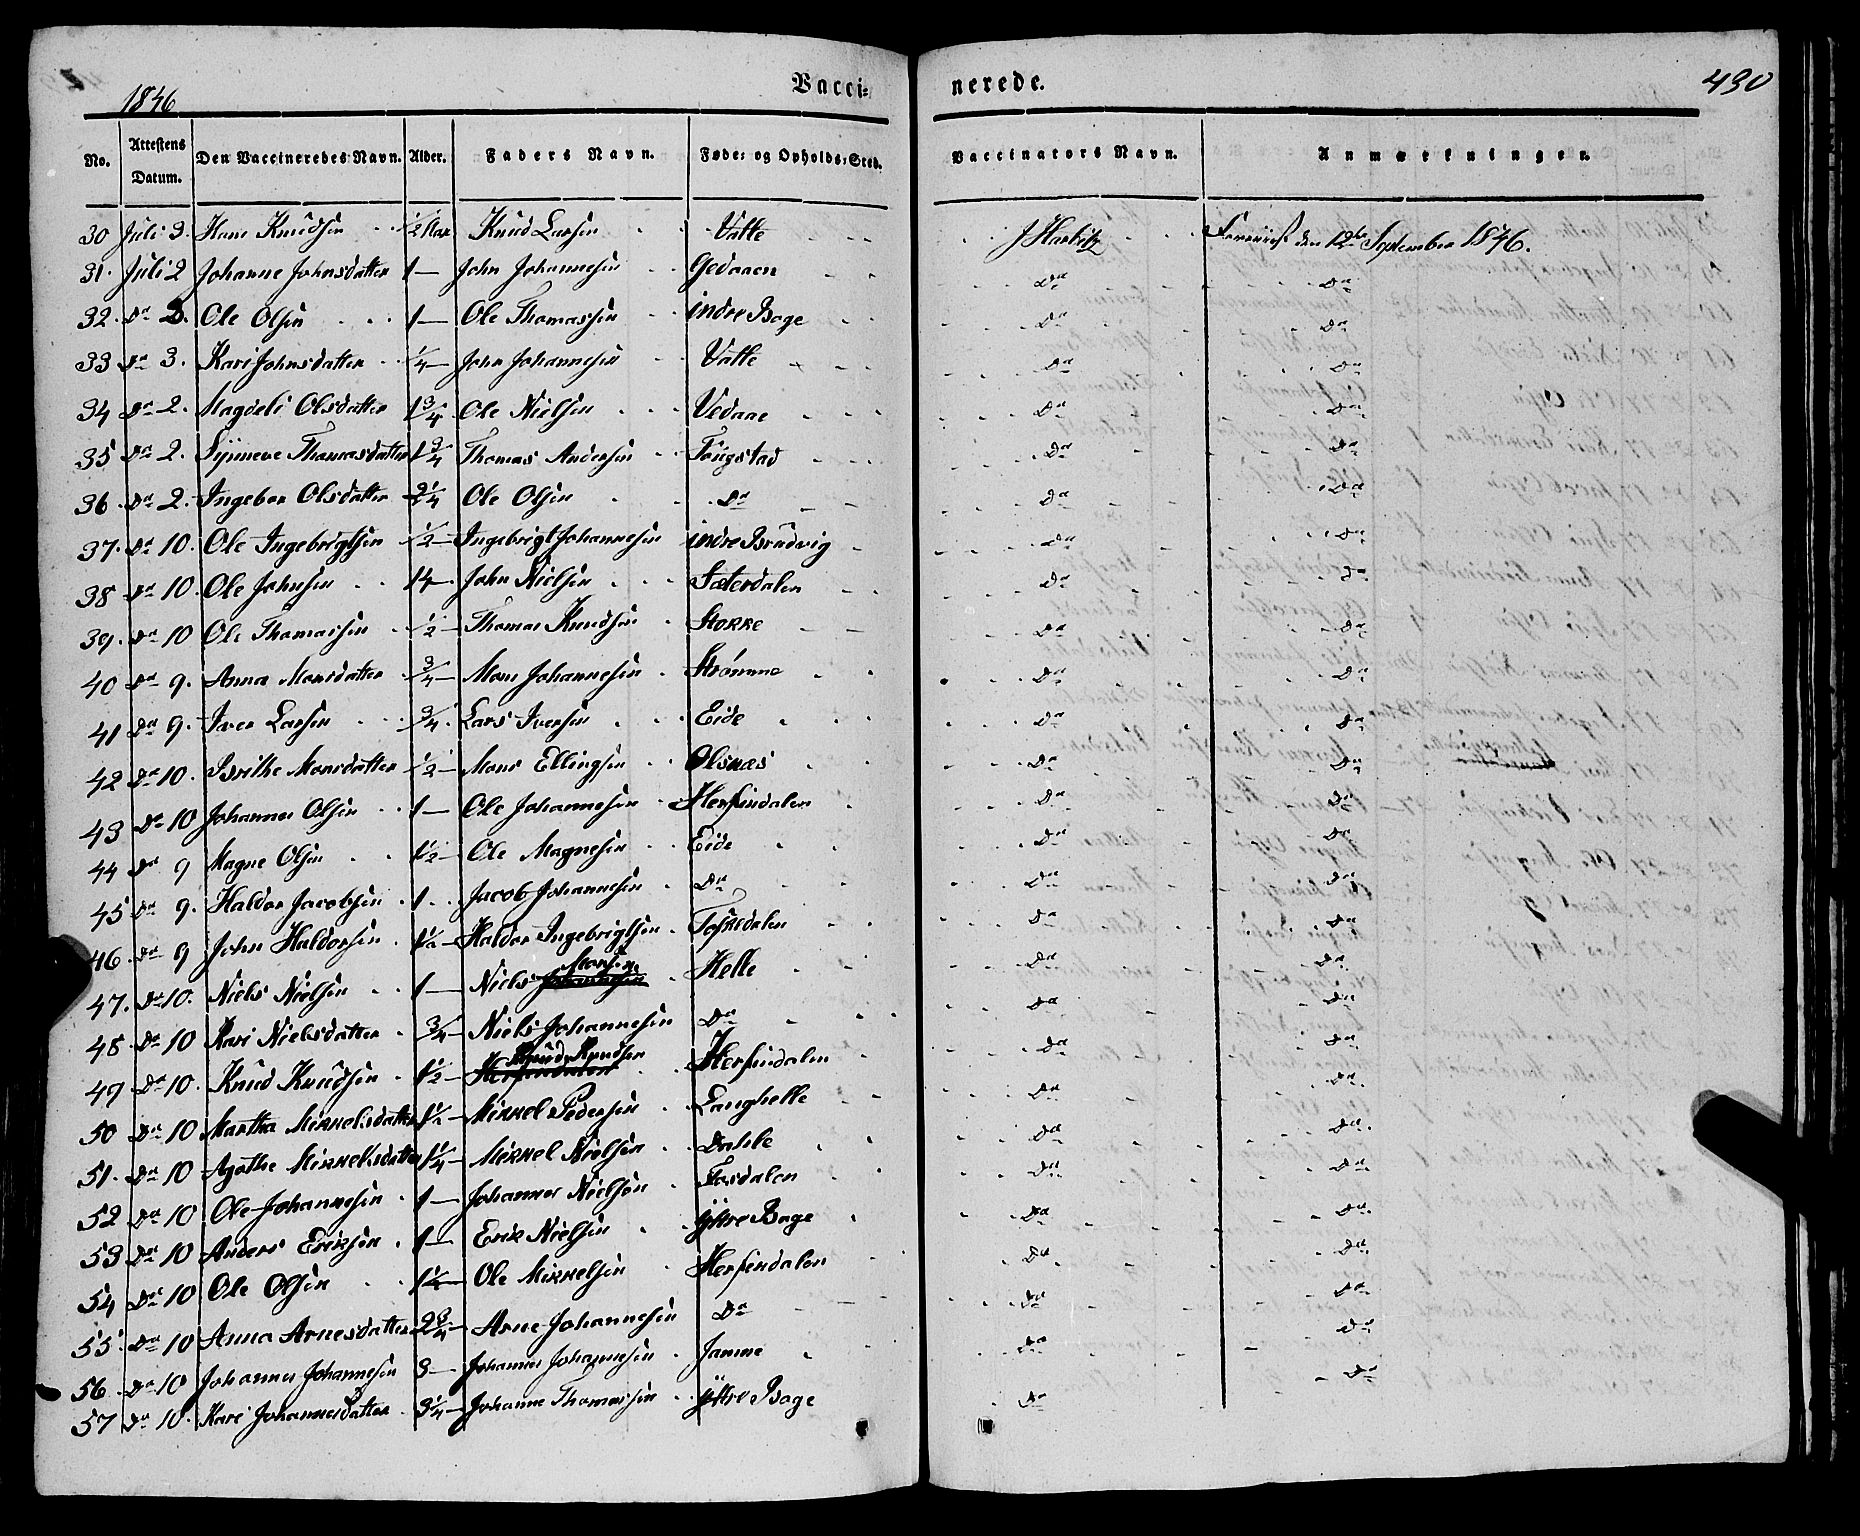 1846 Vacci= nerede. 430
No. Attestens Datum. Den Vaccineredes Navn. Alder. Faders Navn. Føde= og Opholds=Sted. Vaccinators Navn. Anmærkninger.
30 Juli 3. Hans Knudsen 1/2 Aar Knud Larsen Vatle J Harbitz den 12te September 1846.
31. Juli 2 Johanne Johnsdatter 1 — John Johannesen Gedaaen Do Do
32. Do 2. Ole Olsen 1 — Ole Thomassen indre Boge Do Do
33 Do 3. Kari Johnsdatter 1/4 — John Johannesen Vatle Do Do
34 Do 2. Magdeli Olsdatter 1 3/4 Ole Nielsen Vedaae Do Do
35 Do 2. Synneve Thomasdatter 1 3/4 Thomas Andersen Fougstad Do Do
36. Do 2. Ingebor Olsdatter 2 1/4 Ole Olsen Do Do Do
37. Do 10. Ole Ingebrigtsen 1/2 — Ingebrigt Johannesen indre Bruvig Do Do
38 Do 10. Ole Johnsen 1/4 — John Nielsen Sæterdalen Do Do
39. Do 10 Ole Thomassen 1/2 — Thomas Knudsen Storke Do Do
40 Do 9. Anna Monsdatter 3/4 — Mons Johannesen Strømme Do Do
41 Do 9. Iver Larsen 3/4. Lars Iversen Eide Do Do
42 Do 10. Brithe Monsdatter 1/2 — Mons Ellingsen Olsnæs Do Do
43 Do 10 Johannes Olsen 1 — Ole Johannesen Herfindalen Do Do
44 Do 9 Magne Olsen 1 1/2 — Ole Magnesen Eide Do Do
45 Do 9. Haldor Jacobsen 1 Jacob Johannesen Do Do Do
46 Do 9 John Haldorsen 1 1/2 — Haldor Ingebrigtsen Toskedalen Do Do
47. Do 10. Niels Nielsen 1 — Niels Johannesen Monsen Helle Do Do
48 Do 10 Kari Nielsdatter 3/4 — Niels Johannesen Do Do Do
49 Do 10. Knud Knudsen 1 1/2 — Herfindalen Knud Knudsen Herfindalen Do Do
50 Do 10 Martha Mikkelsdatter 1 1/2 — Mikkel Pedersen Langhelle Do Do
51. Do 10 Agathe Mikkelsdatter 1 1/4 — Mikkel Nielsen Dahle Do Do
52 Do 10 Ole Johannesen 1 — Johannes Nielsen Fosdalen Do Do
53 Do 10 Anders Eriksen 1 — Erik Nielsen ÿttre Boge Do Do
54 Do 10 Ole Olsen 1 1/4 — Ole Mikkelsen Herfindalen Do Do
55 Do 10 Anna Arnesdatter 2 3/4 — Arne Johannesen Do Do Do
56 Do 10 Johannes Johannesen 3 — Johannes Johannesen Jamne Do Do
57 Do 10. Kari Johannesdatter 3 1/4 — Johanne Thomassen ÿttre Boge Do Do